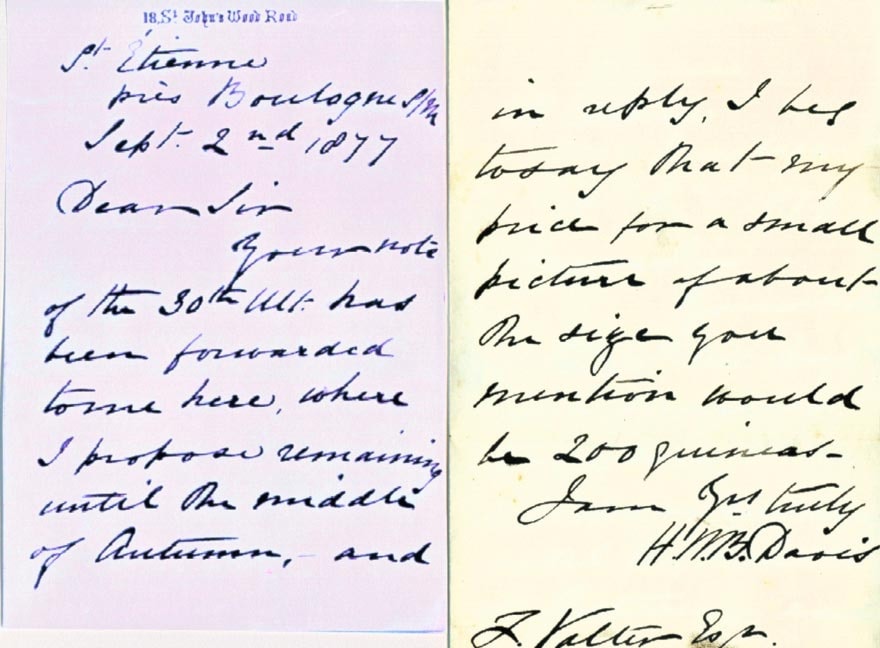 18, St John's Wood Road
St Étienne
près Boulogne s/m
Sept. 2nd 1877
Dear Sir
Your note
of the 30th Ult. has
been forwarded
to me here, where
I propose remaining
until the middle
of Autumn, - and
in reply, I beg
to say that my
price for a small
picture of about
the size you
mention would
be 200 guineas -
I am Yrs truly
H.W.B. Davis
Esqr.